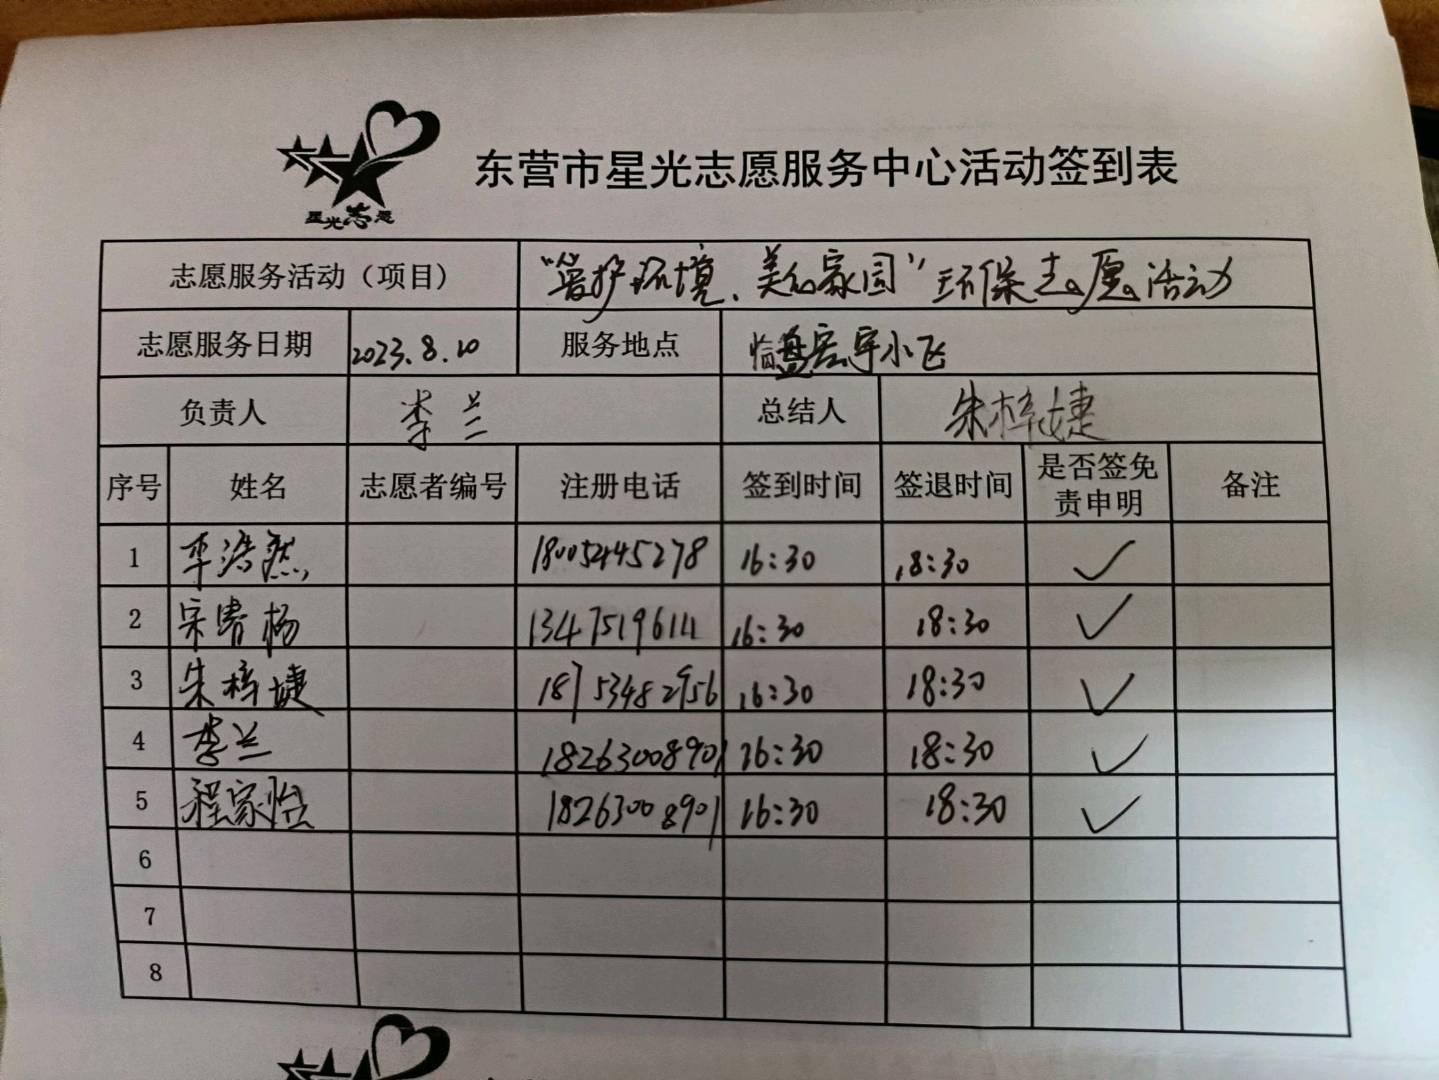 星光志愿
东营市星光志愿服务中心活动签到表
志愿服务活动（项目） “管护环境、美化家园”环保志愿活动
志愿服务日期 2023.8.20 服务地点 临盘宏宇小飞
负责人 李兰 总结人 朱梓婕
序号 姓名 志愿者编号 注册电话 签到时间 签退时间 是否签免责申明 备注
1 李浩然 18005445278 16:30 18:30 ✓
2 宋 杨 13475196111 16:30 18:30 ✓
3 朱梓婕 18753482956 16:30 18:30 ✓
4 李兰 18263008901 16:30 18:30 ✓
5 程家怡 18263008901 16:30 18:30 ✓
6
7
8